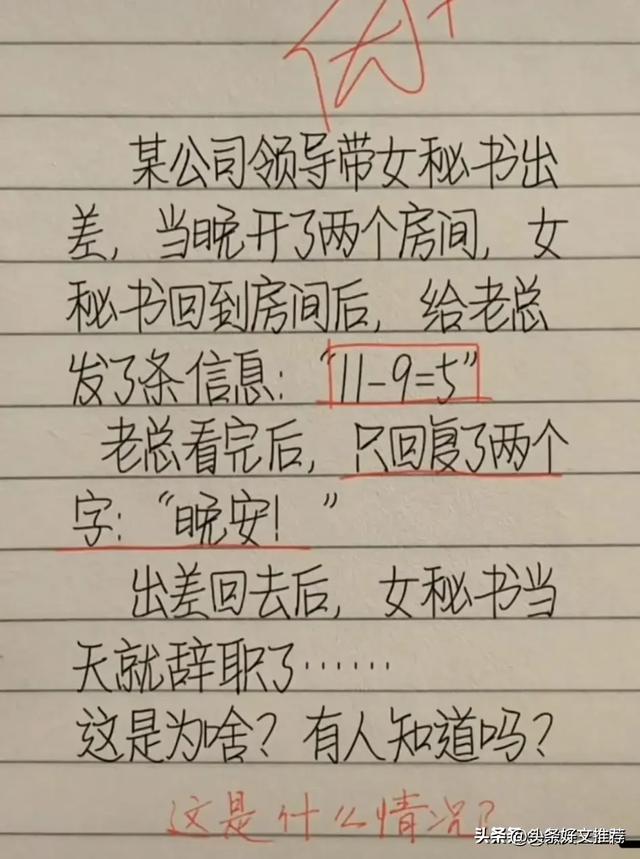 优+
某公司领导带女秘书出
差，当晚开了两个房间，女
秘书回到房间后，给老总
发了条信息：“11-9=5”
老总看完后，只回复了两个
字：“晚安！”
出差回去后，女秘书当
天就辞职了……
这是为啥？有人知道吗？
这是什么情况？
头条@头条好文推荐